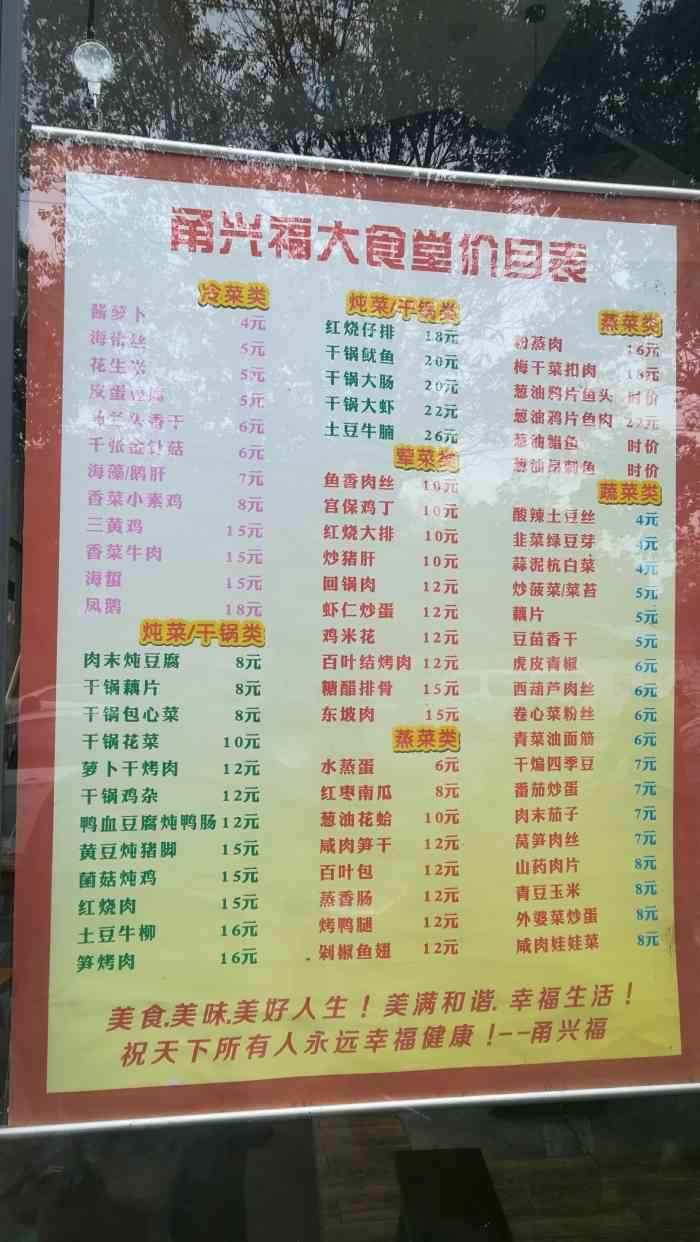 甬兴福大食堂价目表
冷菜类
酱萝卜 4元
海蜇丝 5元
花生米 5元
皮蛋豆腐 5元
马兰头香干 6元
千张金针菇 6元
海藻/鹅肝 7元
香菜小素鸡 8元
三黄鸡 15元
香菜牛肉 15元
海蜇 15元
凤鹅 18元
炖菜/干锅类
肉末炖豆腐 8元
干锅藕片 8元
干锅包心菜 8元
干锅花菜 10元
萝卜干烤肉 12元
干锅鸡杂 12元
鸭血豆腐炖鸭肠 12元
黄豆炖猪脚 15元
菌菇炖鸡 15元
红烧肉 15元
土豆牛柳 16元
笋烤肉 16元
炖菜/干锅类
红烧仔排 18元
干锅鱿鱼 20元
干锅大肠 20元
干锅大虾 22元
土豆牛腩 26元
荤菜类
鱼香肉丝 10元
宫保鸡丁 10元
红烧大排 10元
炒猪肝 10元
回锅肉 12元
虾仁炒蛋 12元
鸡米花 12元
百叶结烤肉 12元
糖醋排骨 15元
东坡肉 15元
蒸菜类
水蒸蛋 6元
红枣南瓜 8元
葱油花蛤 10元
咸肉笋干 12元
百叶包 12元
蒸香肠 12元
烤鸭腿 12元
剁椒鱼翅 12元
蒸菜类
粉蒸肉 16元
梅干菜扣肉 18元
葱油鸦片鱼头 时价
葱油鸦片鱼肉 22元
葱油鲳鱼 时价
葱油昂刺鱼 时价
蔬菜类
酸辣土豆丝 4元
韭菜绿豆芽 4元
蒜泥杭白菜 4元
炒菠菜/菜苔 5元
藕片 5元
豆苗香干 5元
虎皮青椒 6元
西葫芦肉丝 6元
卷心菜粉丝 6元
青菜油面筋 6元
干煸四季豆 7元
番茄炒蛋 7元
肉末茄子 7元
莴笋肉丝 7元
山药肉片 8元
青豆玉米 8元
外婆菜炒蛋 8元
咸肉娃娃菜 8元
美食.美味.美好人生！美满和谐.幸福生活！
祝天下所有人永远幸福健康！--甬兴福